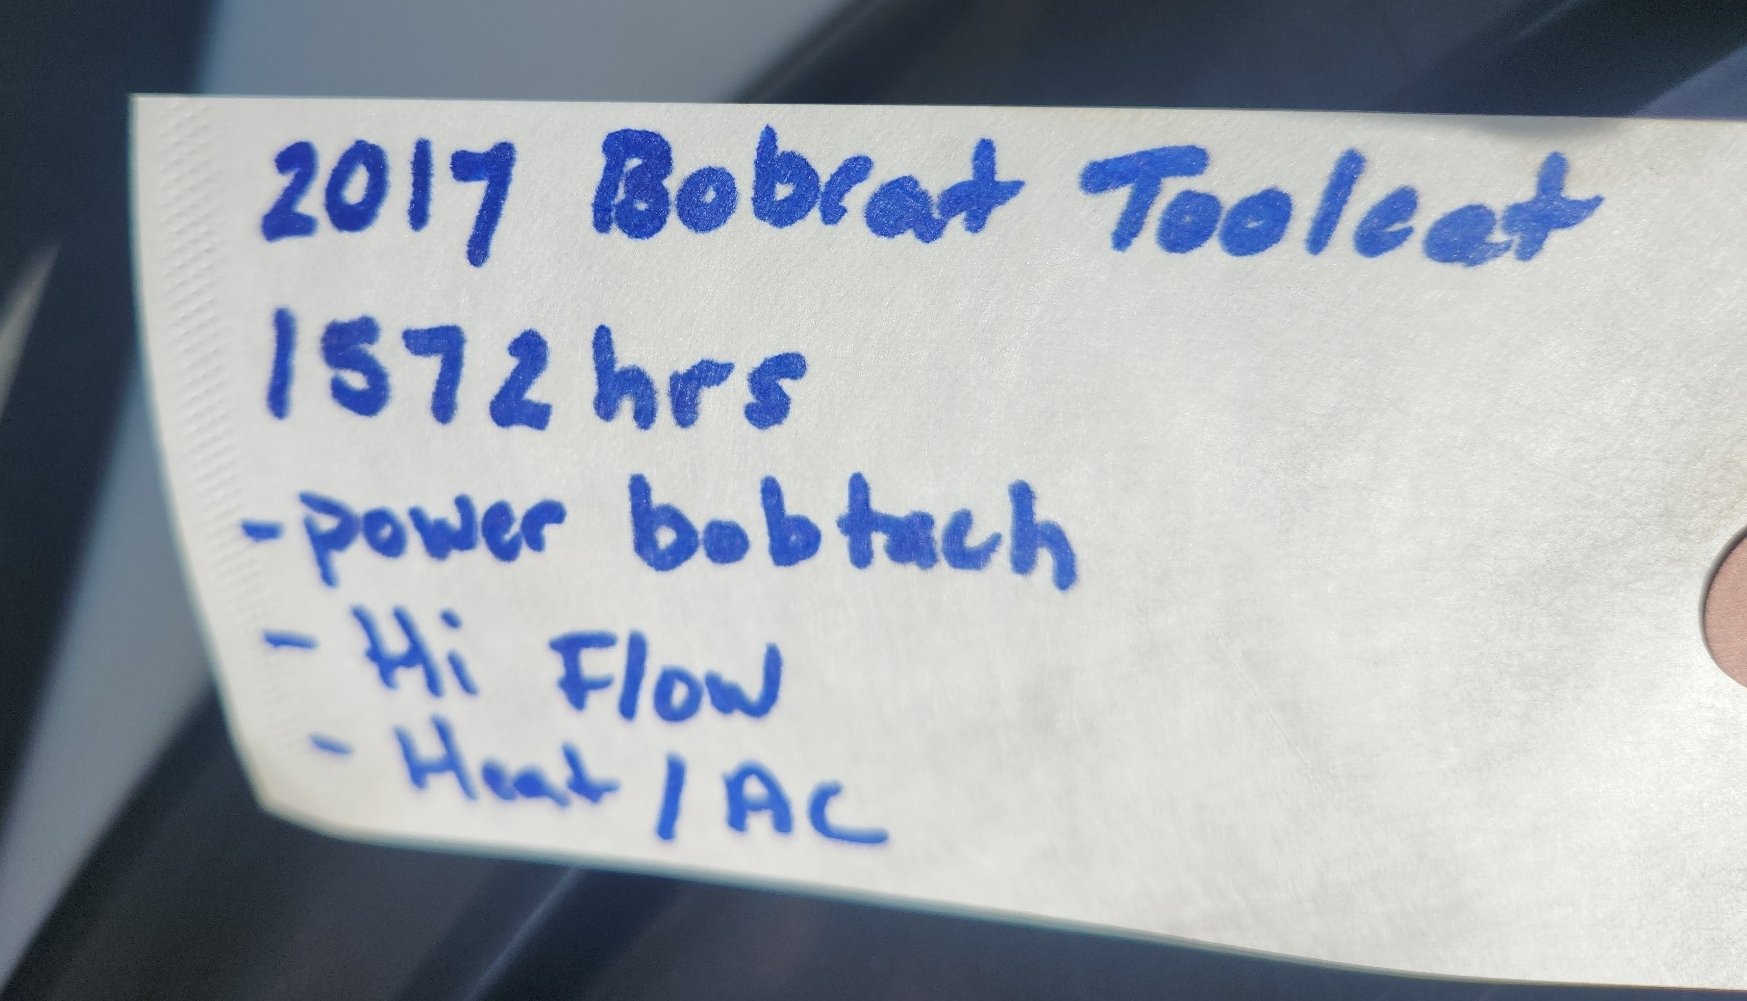 2017 Bobcat Toolcat
1572 hrs
- power bobtach
- Hi Flow
- Heat / AC